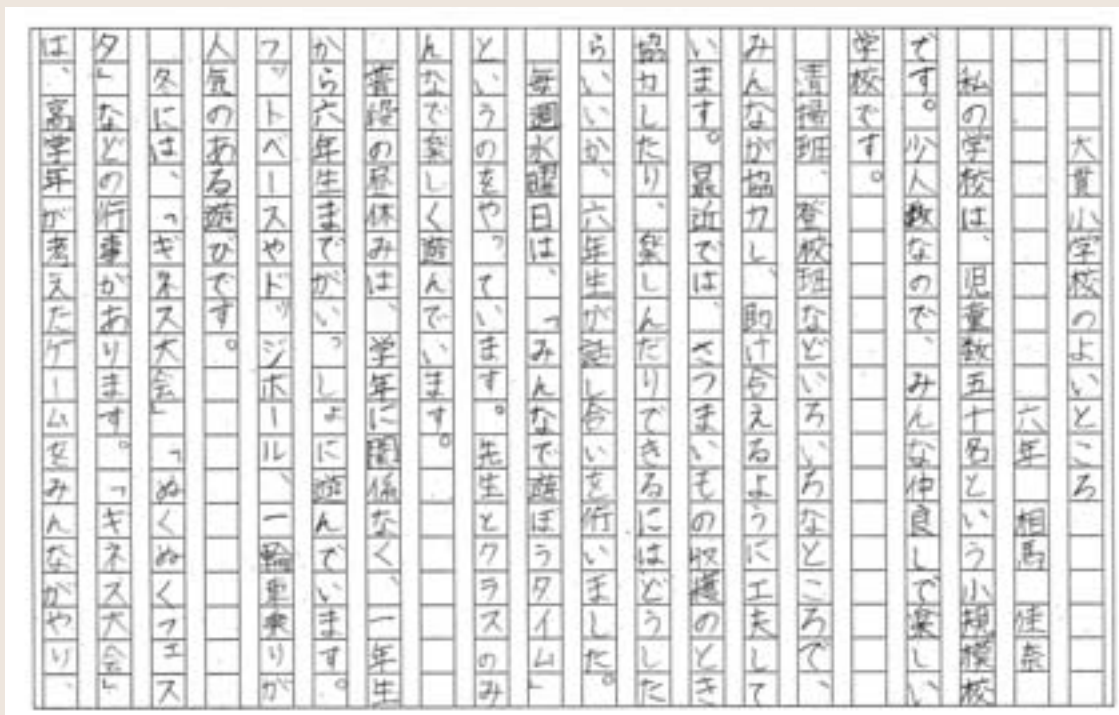 大貫小学校のよいところ
六年 相馬 佳奈
私の学校は、児童数五十名という小規模校
です。少人数なので、みんな仲良しで楽しい
学校です。
清掃班、登校班などいろいろなところで、
みんなが協力し、助け合えるように工夫して
います。最近では、さつまいもの収穫のとき
協力したり、楽しんだりできるにはどうした
らいいか、六年生が話し合いを行いました。
毎週水曜日は、「みんなで遊ぼうタイム」
というのをやっています。先生とクラスのみ
んなで楽しく遊んでいます。
普段の昼休みは、学年に関係なく、一年生
から六年生までがいっしょに遊んでいます。
フットベースやドッジボール、一輪車乗りが
人気のある遊びです。
冬には、「ギネス大会」「ぬくぬくフェス
タ」などの行事があります。「ギネス大会」
は、高学年が考えたゲームをみんながやり、